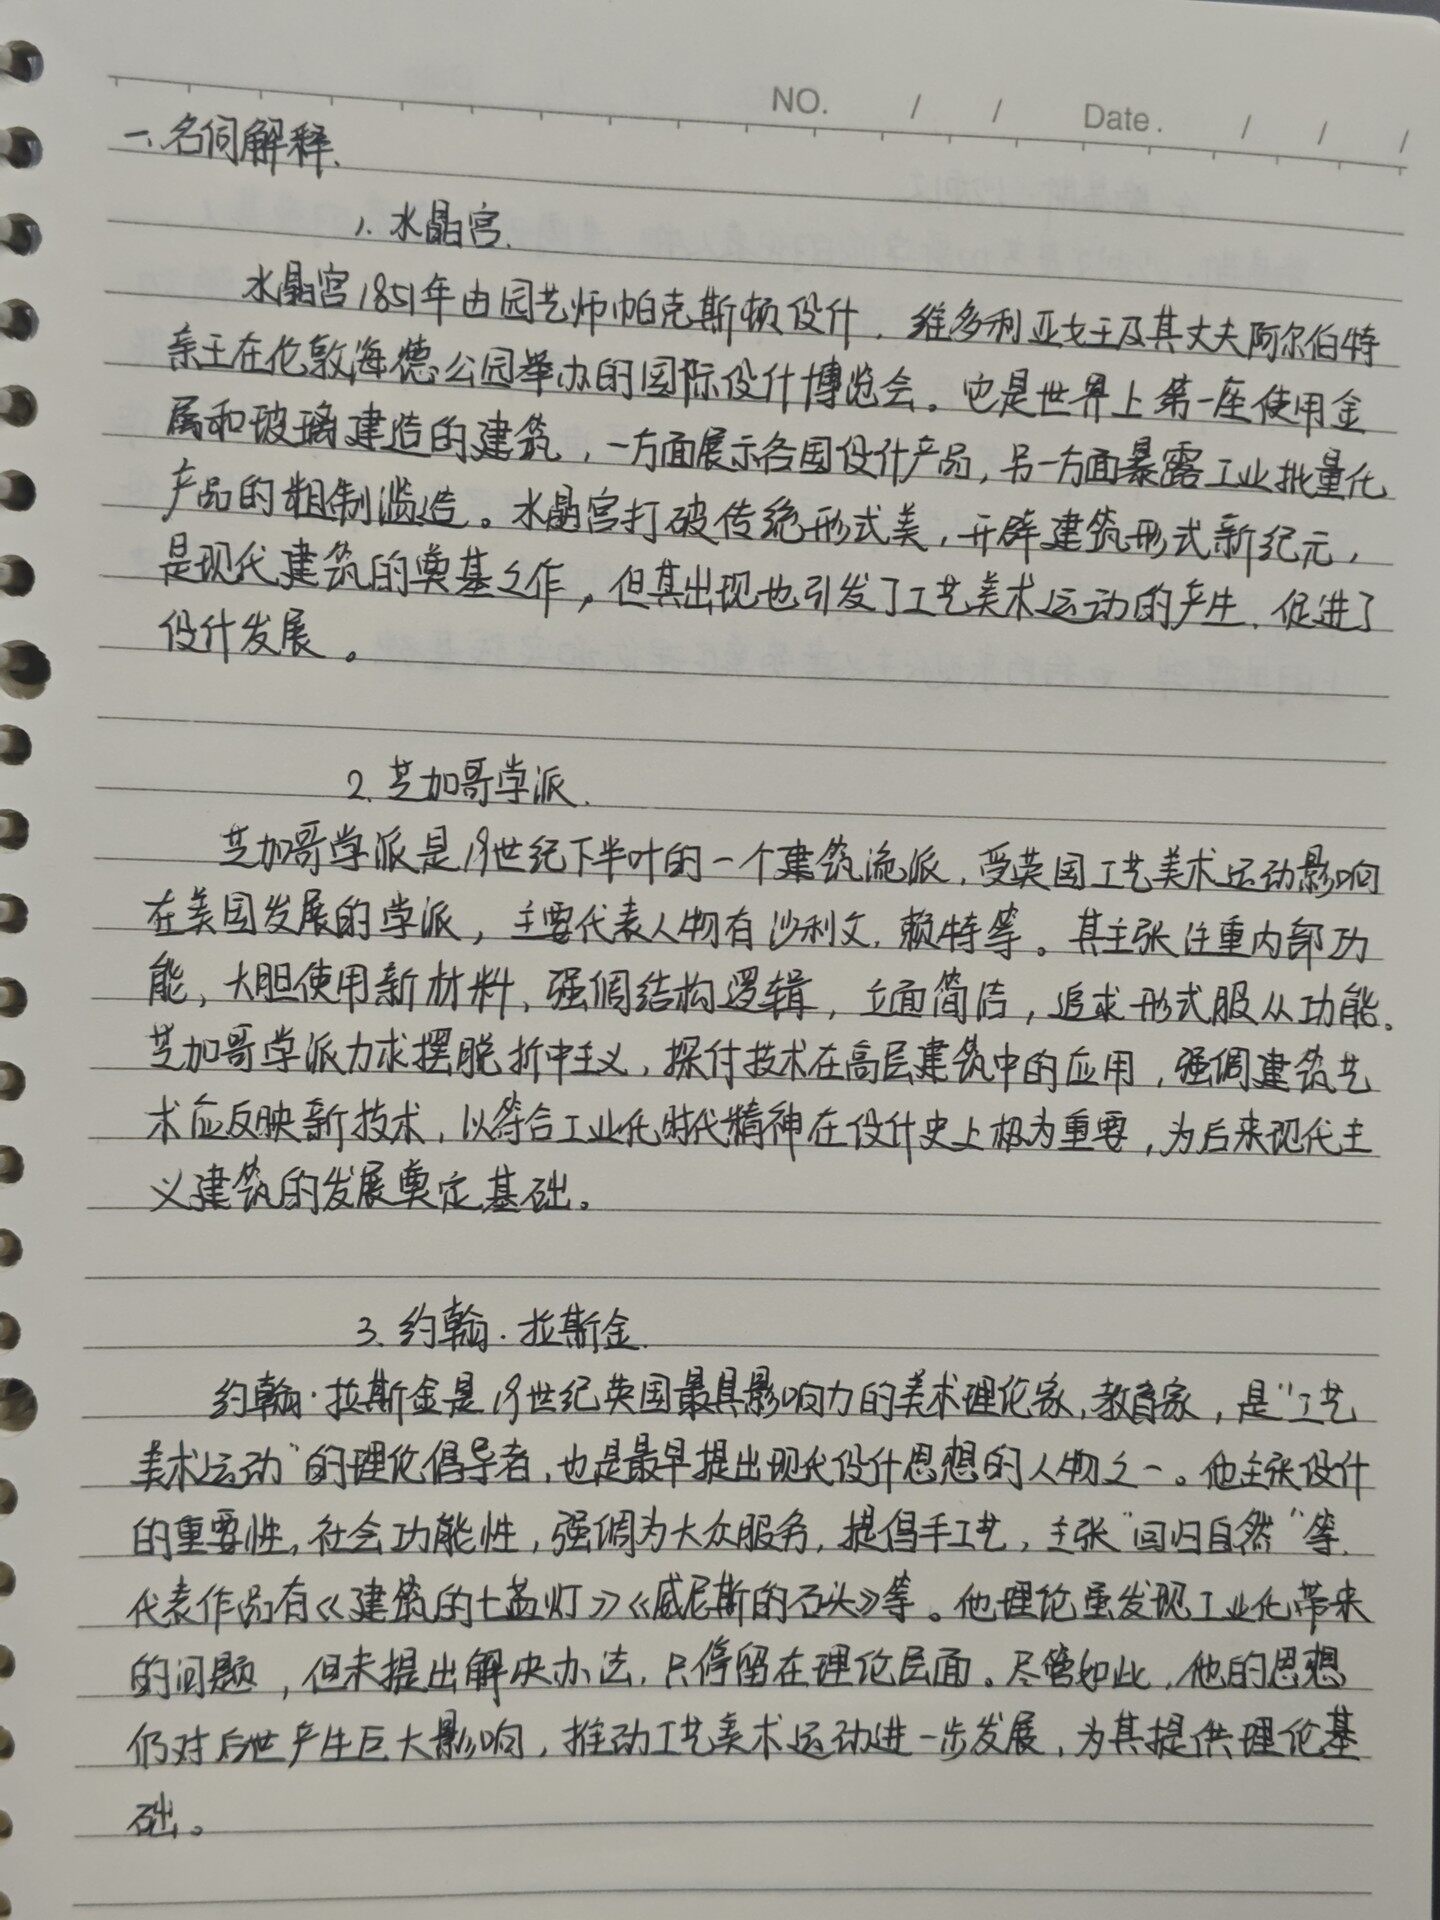 NO. / / Date. / / /
一、名词解释.
1. 水晶宫.
水晶宫1851年由园艺师帕克斯顿设计，维多利亚女王及其丈夫阿尔伯特
亲王在伦敦海德公园举办的国际设计博览会。它是世界上第一座使用金
属和玻璃建造的建筑，一方面展示各国设计产品，另一方面暴露工业批量化
产品的粗制滥造。水晶宫打破传统形式美，开辟建筑形式新纪元，
是现代建筑的奠基之作，但其出现也引发了工艺美术运动的产生，促进了
设计发展。
2. 芝加哥学派.
芝加哥学派是19世纪下半叶的一个建筑流派，受英国工艺美术运动影响
在美国发展的学派，主要代表人物有沙利文，赖特等。其主张注重内部功
能，大胆使用新材料，强调结构逻辑，立面简洁，追求形式服从功能。
芝加哥学派力求摆脱折中主义，探讨技术在高层建筑中的应用，强调建筑艺
术应反映新技术，以符合工业化时代精神在设计史上极为重要，为后来现代主
义建筑的发展奠定基础。
3. 约翰·拉斯金.
约翰·拉斯金是19世纪英国最具影响力的美术理论家，教育家，是“工艺
美术运动”的理论倡导者，也是最早提出现代设计思想的人物之一。他主张设计
的重要性，社会功能性，强调为大众服务，提倡手工艺，主张“回归自然”等.
代表作品有《建筑的七盏灯》《威尼斯的石头》等。他理论虽发现工业化带来
的问题，但未提出解决办法，只停留在理论层面。尽管如此，他的思想
仍对后世产生巨大影响，推动工艺美术运动进一步发展，为其提供理论基
础。